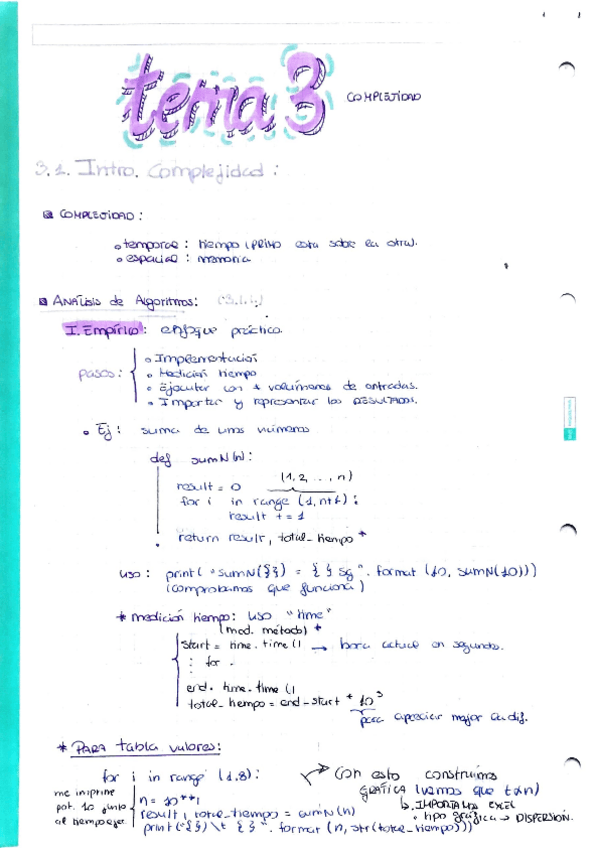 tema 3 COMPLEJIDAD
3.1. Intro. Complejidad:
COMPLEJIDAD:
temporal: tiempo (PRIMO esta sobre la otra).
espacial: memoria
ANÁLISIS de Algoritmos: (3.1.1.)
I. Empírico: enfoque práctico.
pasos:
Implementación
Medición tiempo
Ejecutar con ≠ volúmenes de entradas.
Importar y representar los RESULTADOS.
Ej: suma de unos números
def sumN(n):
result = 0 (1,2, ..., n)
for i in range (1,n+1):
result += 1
return result, total_tiempo *
uso: print("sumN({}) = { } sg". format (10, sumN(10)))
(comprobamos que funciona)
* medición tiempo: uso "time"
(mod. método) *
start = time.time() → hora actual en segundos.
: for .
end. time.time ()
total_tiempo = end-start * 10³
para apreciar mejor la dif.
* PARA tabla valores:
for i in range (1.8):
n = 10**i
result, total_tiempo = sumN(n)
print("{} \t { }". format (n, str(total_tiempo)))
me imprime
pot. 10 junto
al tiempo ejec.
Con esto construimos
GRÁFICA (vemos que t∝n)
IMPORTAMO EXCEL
tipo gráfica → DISPERSIÓN.